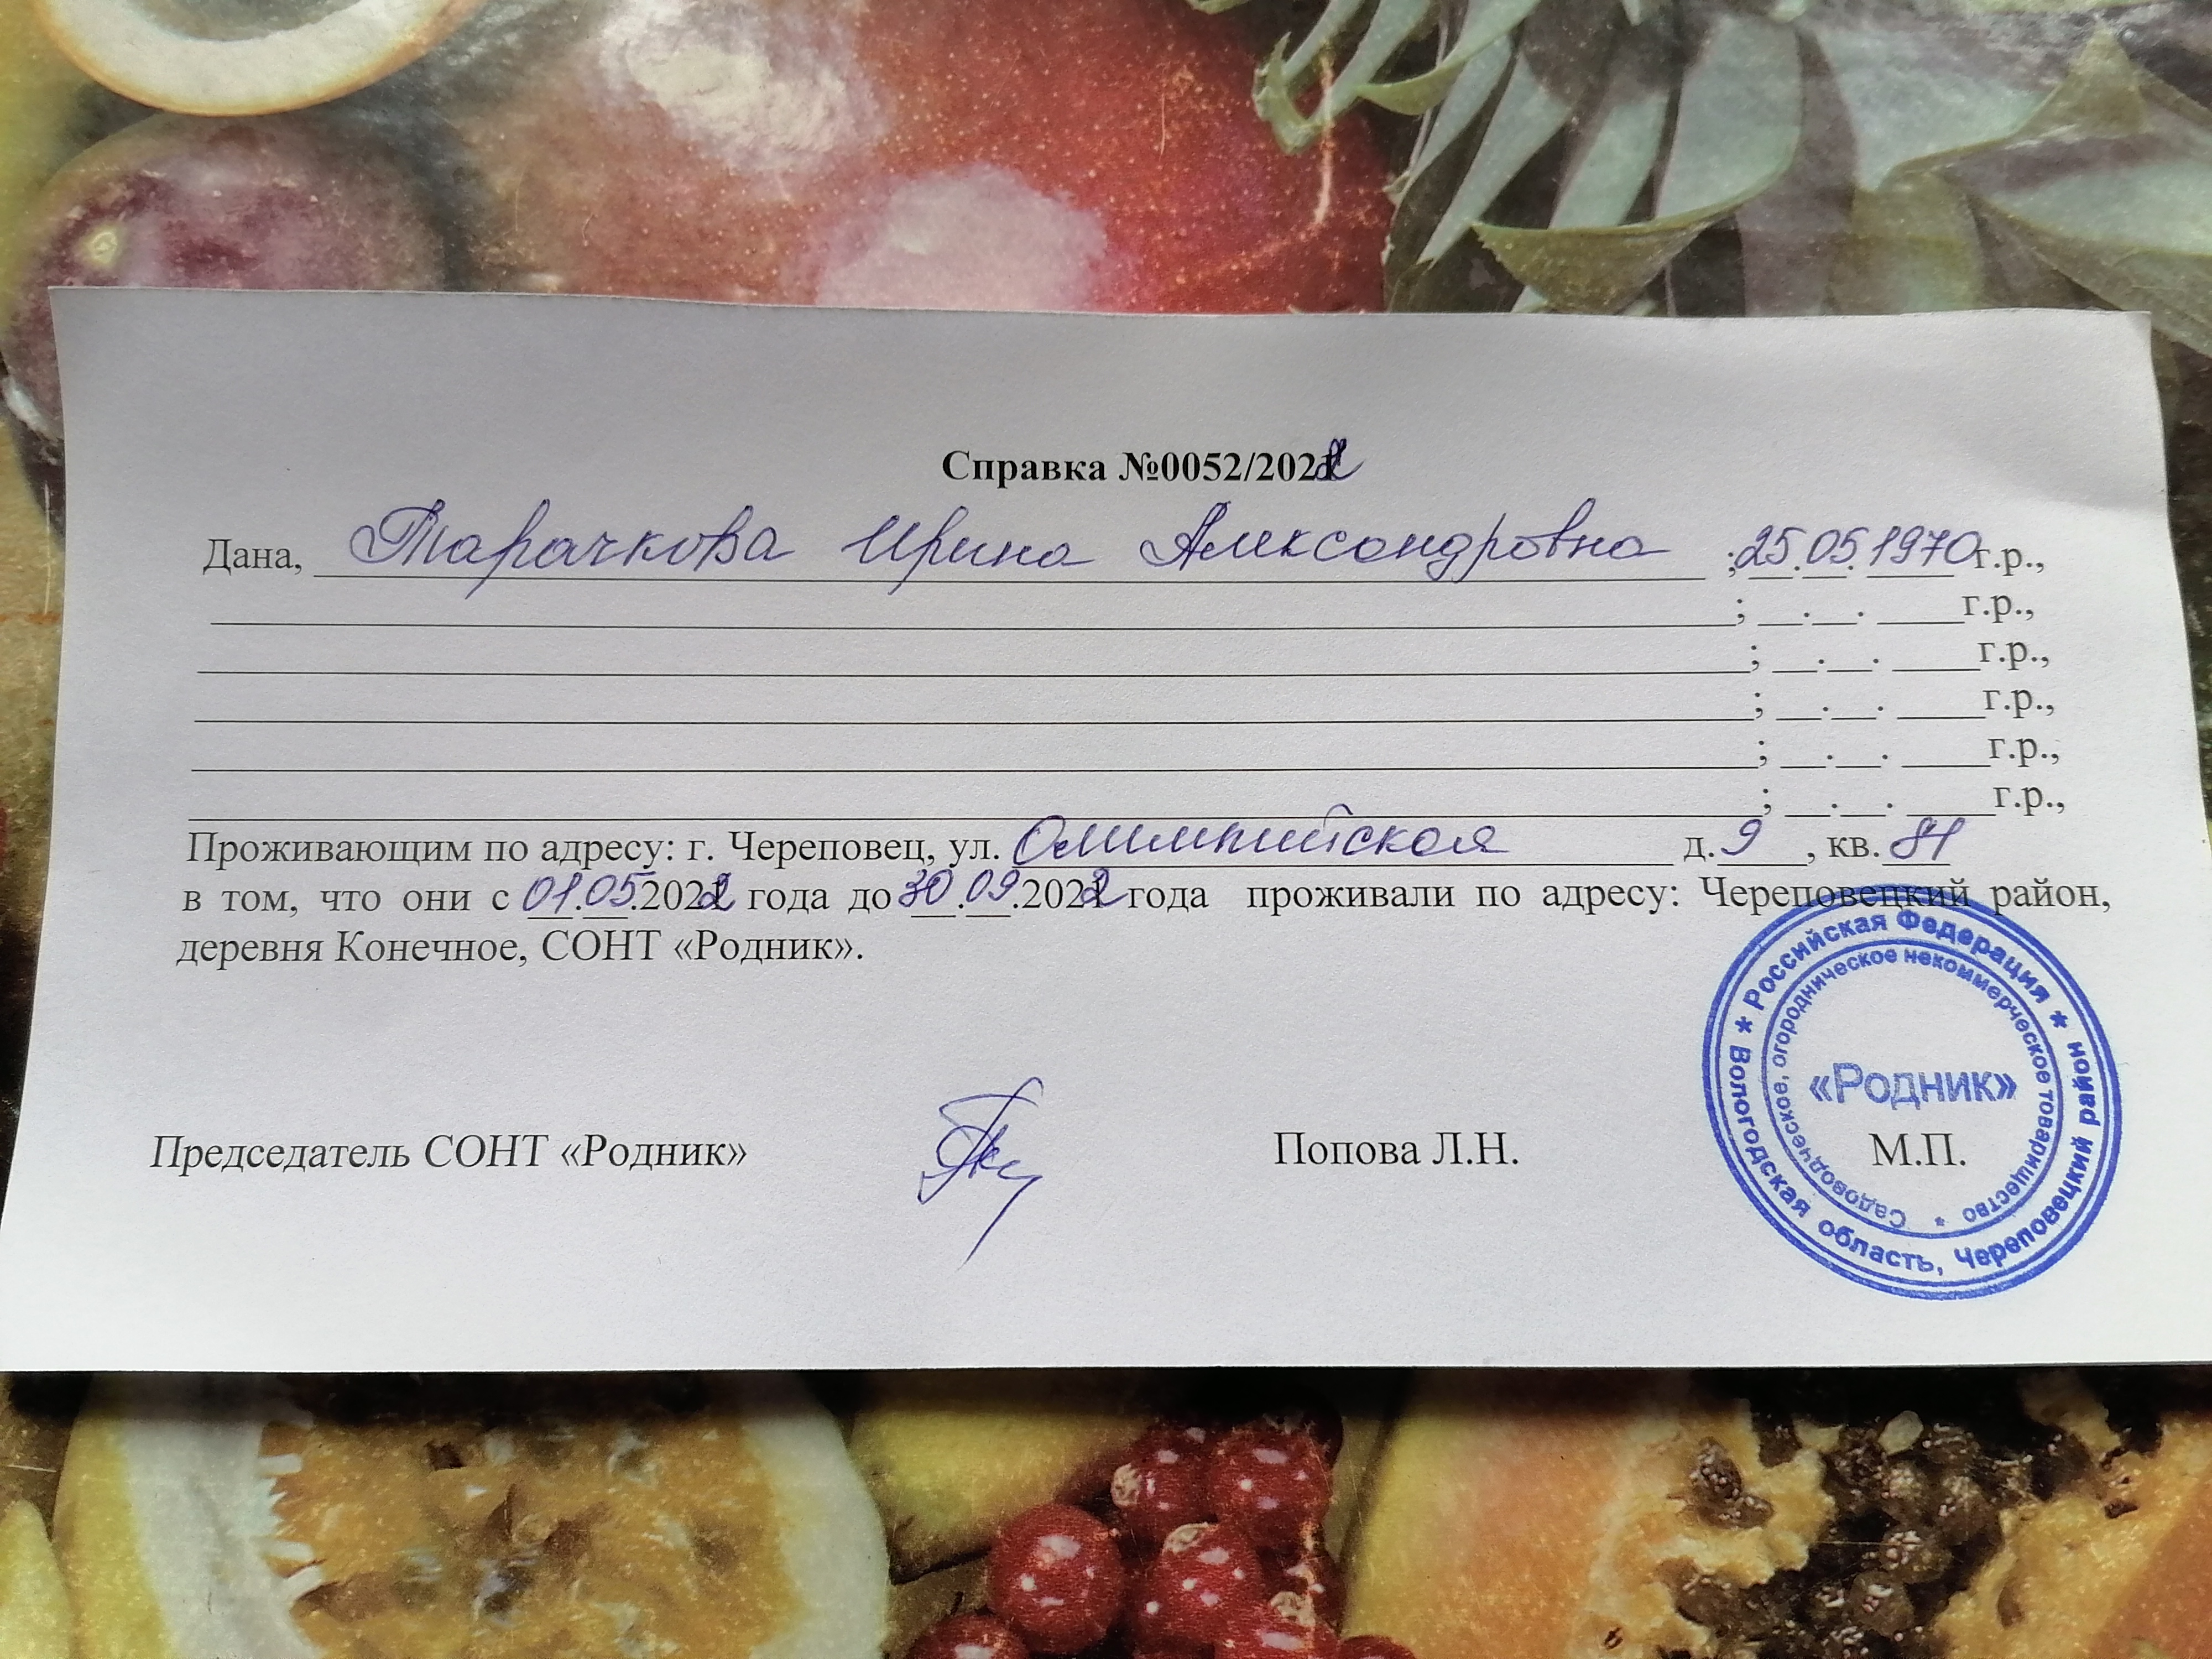 Справка №0052/2022
Дана, Тарачкова Ирина Александровна ; 25.05.1970 г.р.,
; __.__. ____г.р.,
; __.__. ____г.р.,
; __.__. ____г.р.,
; __.__. ____г.р.,
; __.__. ____г.р.,
Проживающим по адресу: г. Череповец, ул. Олимпийская д. 9 , кв. 81
в том, что они с 01.05.2022 года до 30.09.2022 года проживали по адресу: Череповецкий район,
деревня Конечное, СОНТ «Родник».
Председатель СОНТ «Родник» Попова Л.Н. М.П.
* Российская Федерация * Вологодская область, Череповецкий район
Садоводческое, огородническое некоммерческое товарищество *
«Родник»